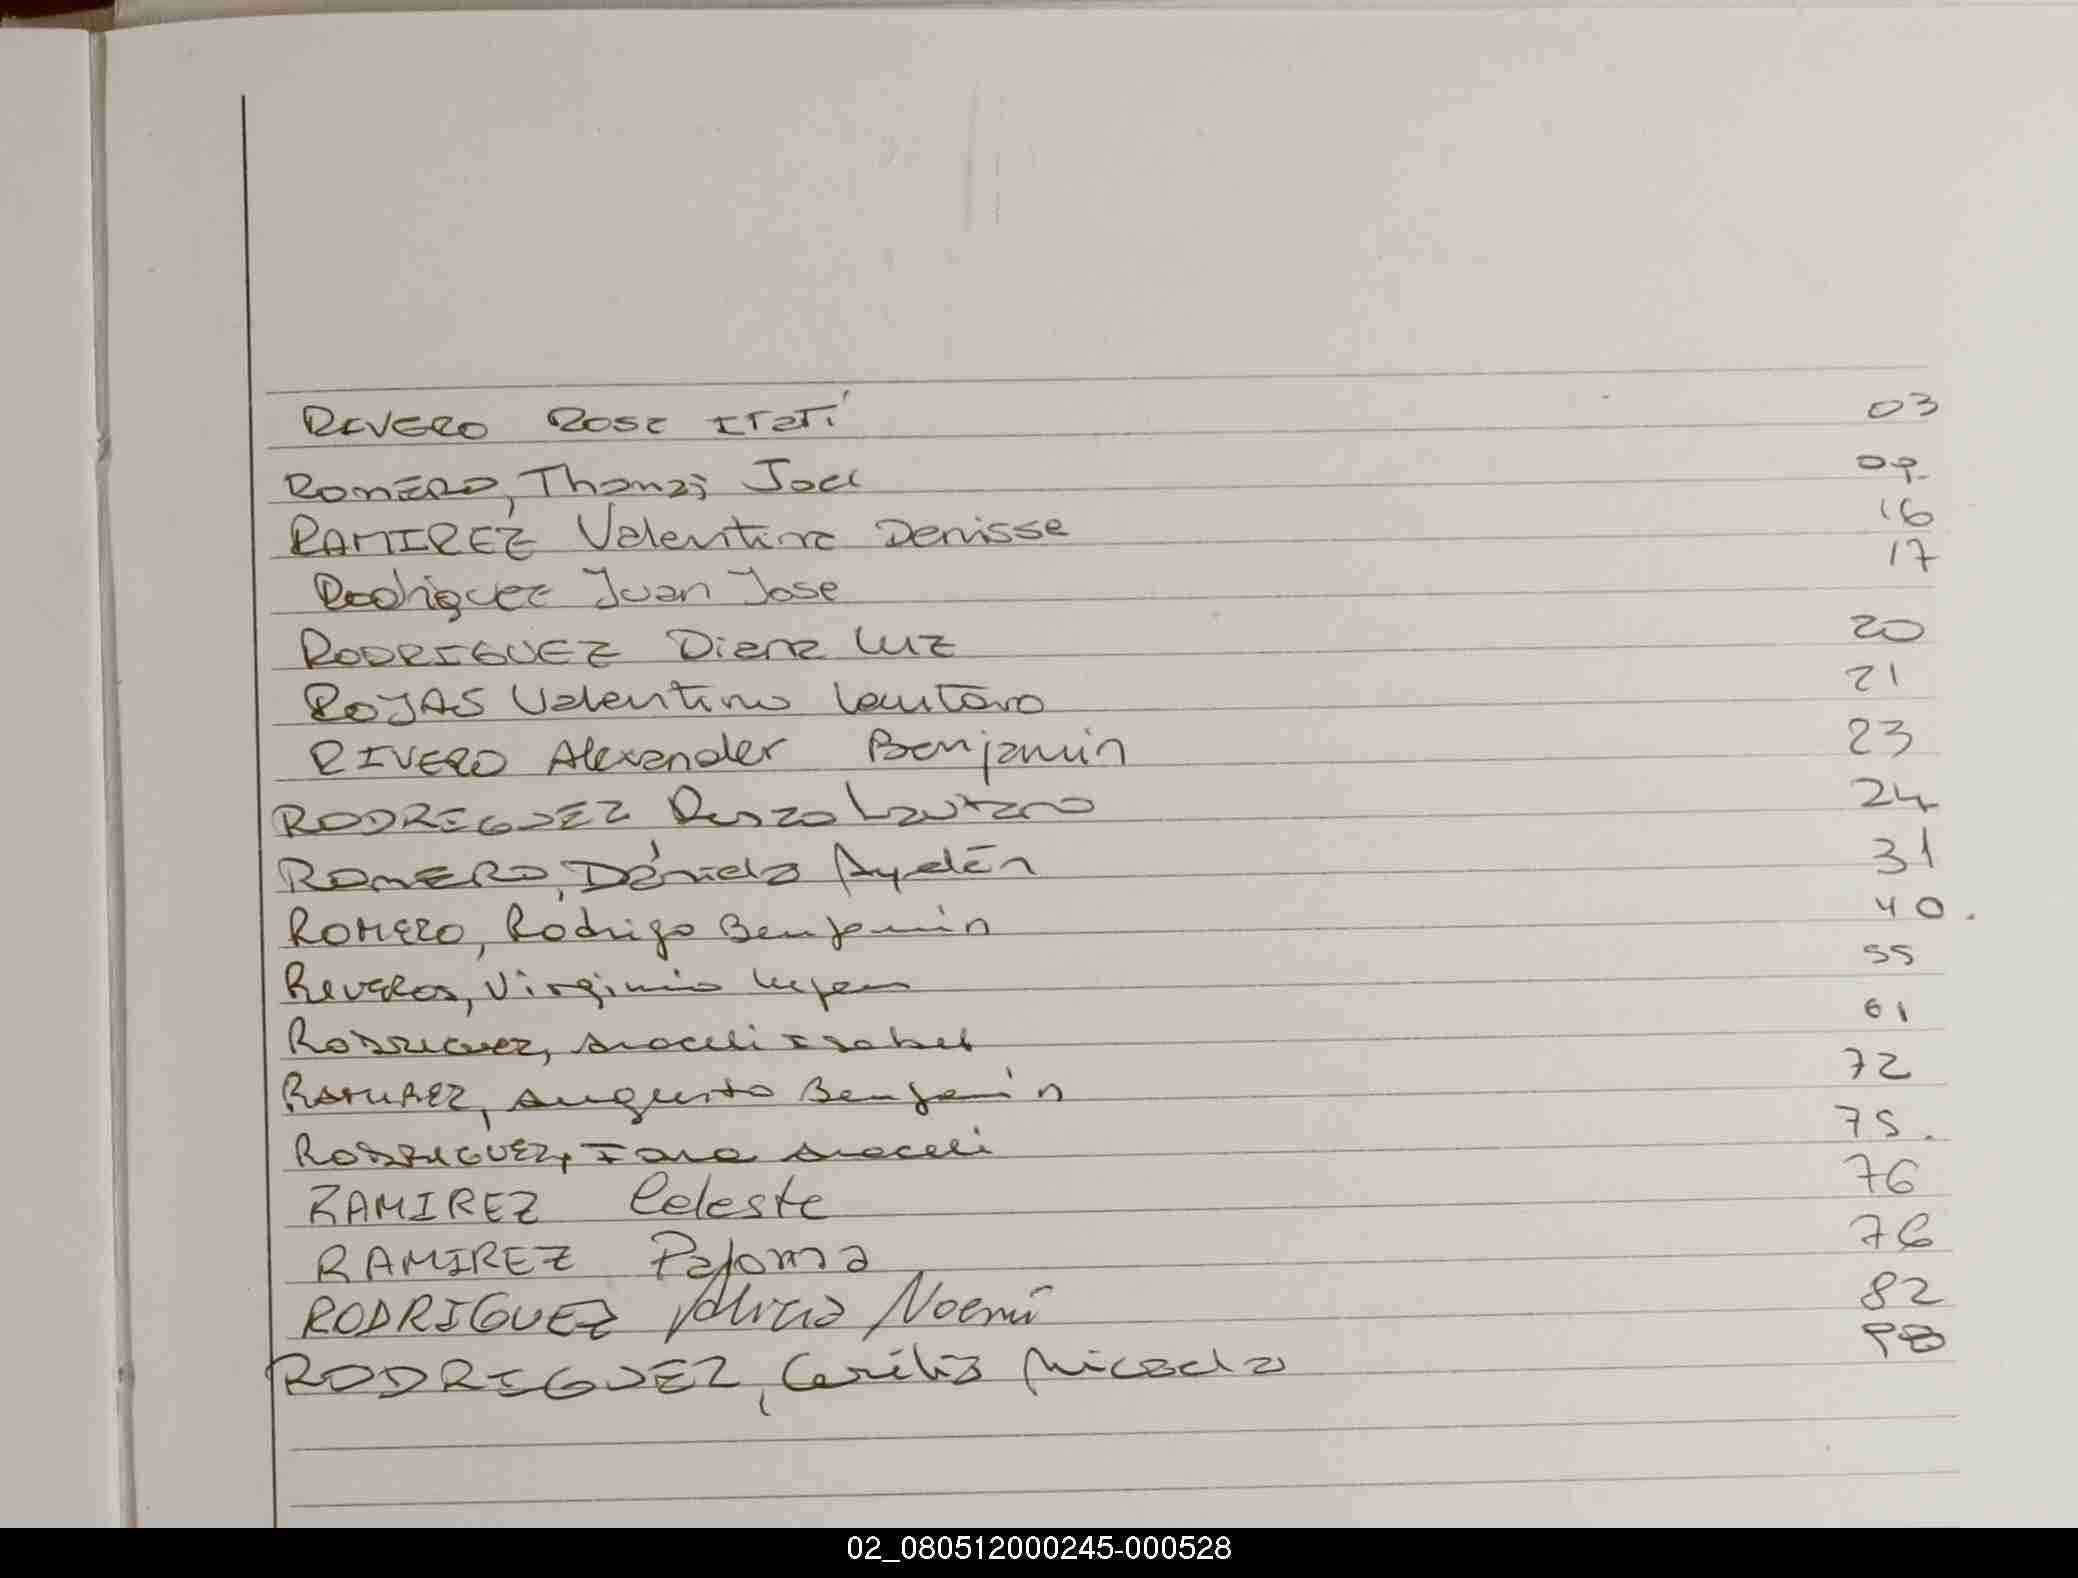 RIVERO ROSA ITATÍ 03
ROMERO, Thomas Joel 09
RAMIREZ Valentina Denisse 16
Rodriguez Juan Jose 17
RODRIGUEZ Diana Luz 20
ROJAS Valentino Lautaro 21
RIVERO Alexander Benjamín 23
RODRIGUEZ Renzo Lautaro 24
ROMERO, Daniela Aydén 31
ROMERO, Rodrigo Benjamin 40.
RIVEROS, Virginia Lujan 55
RODRIGUEZ, Araceli Isabel 61
RAMIREZ, Augusto Benjamín 72
RODRIGUEZ, Iara Araceli 75.
RAMIREZ Celeste 76
RAMIREZ Paloma 76
RODRIGUEZ Noemí 82
RODRIGUEZ, Micaela 98
02_080512000245-000528